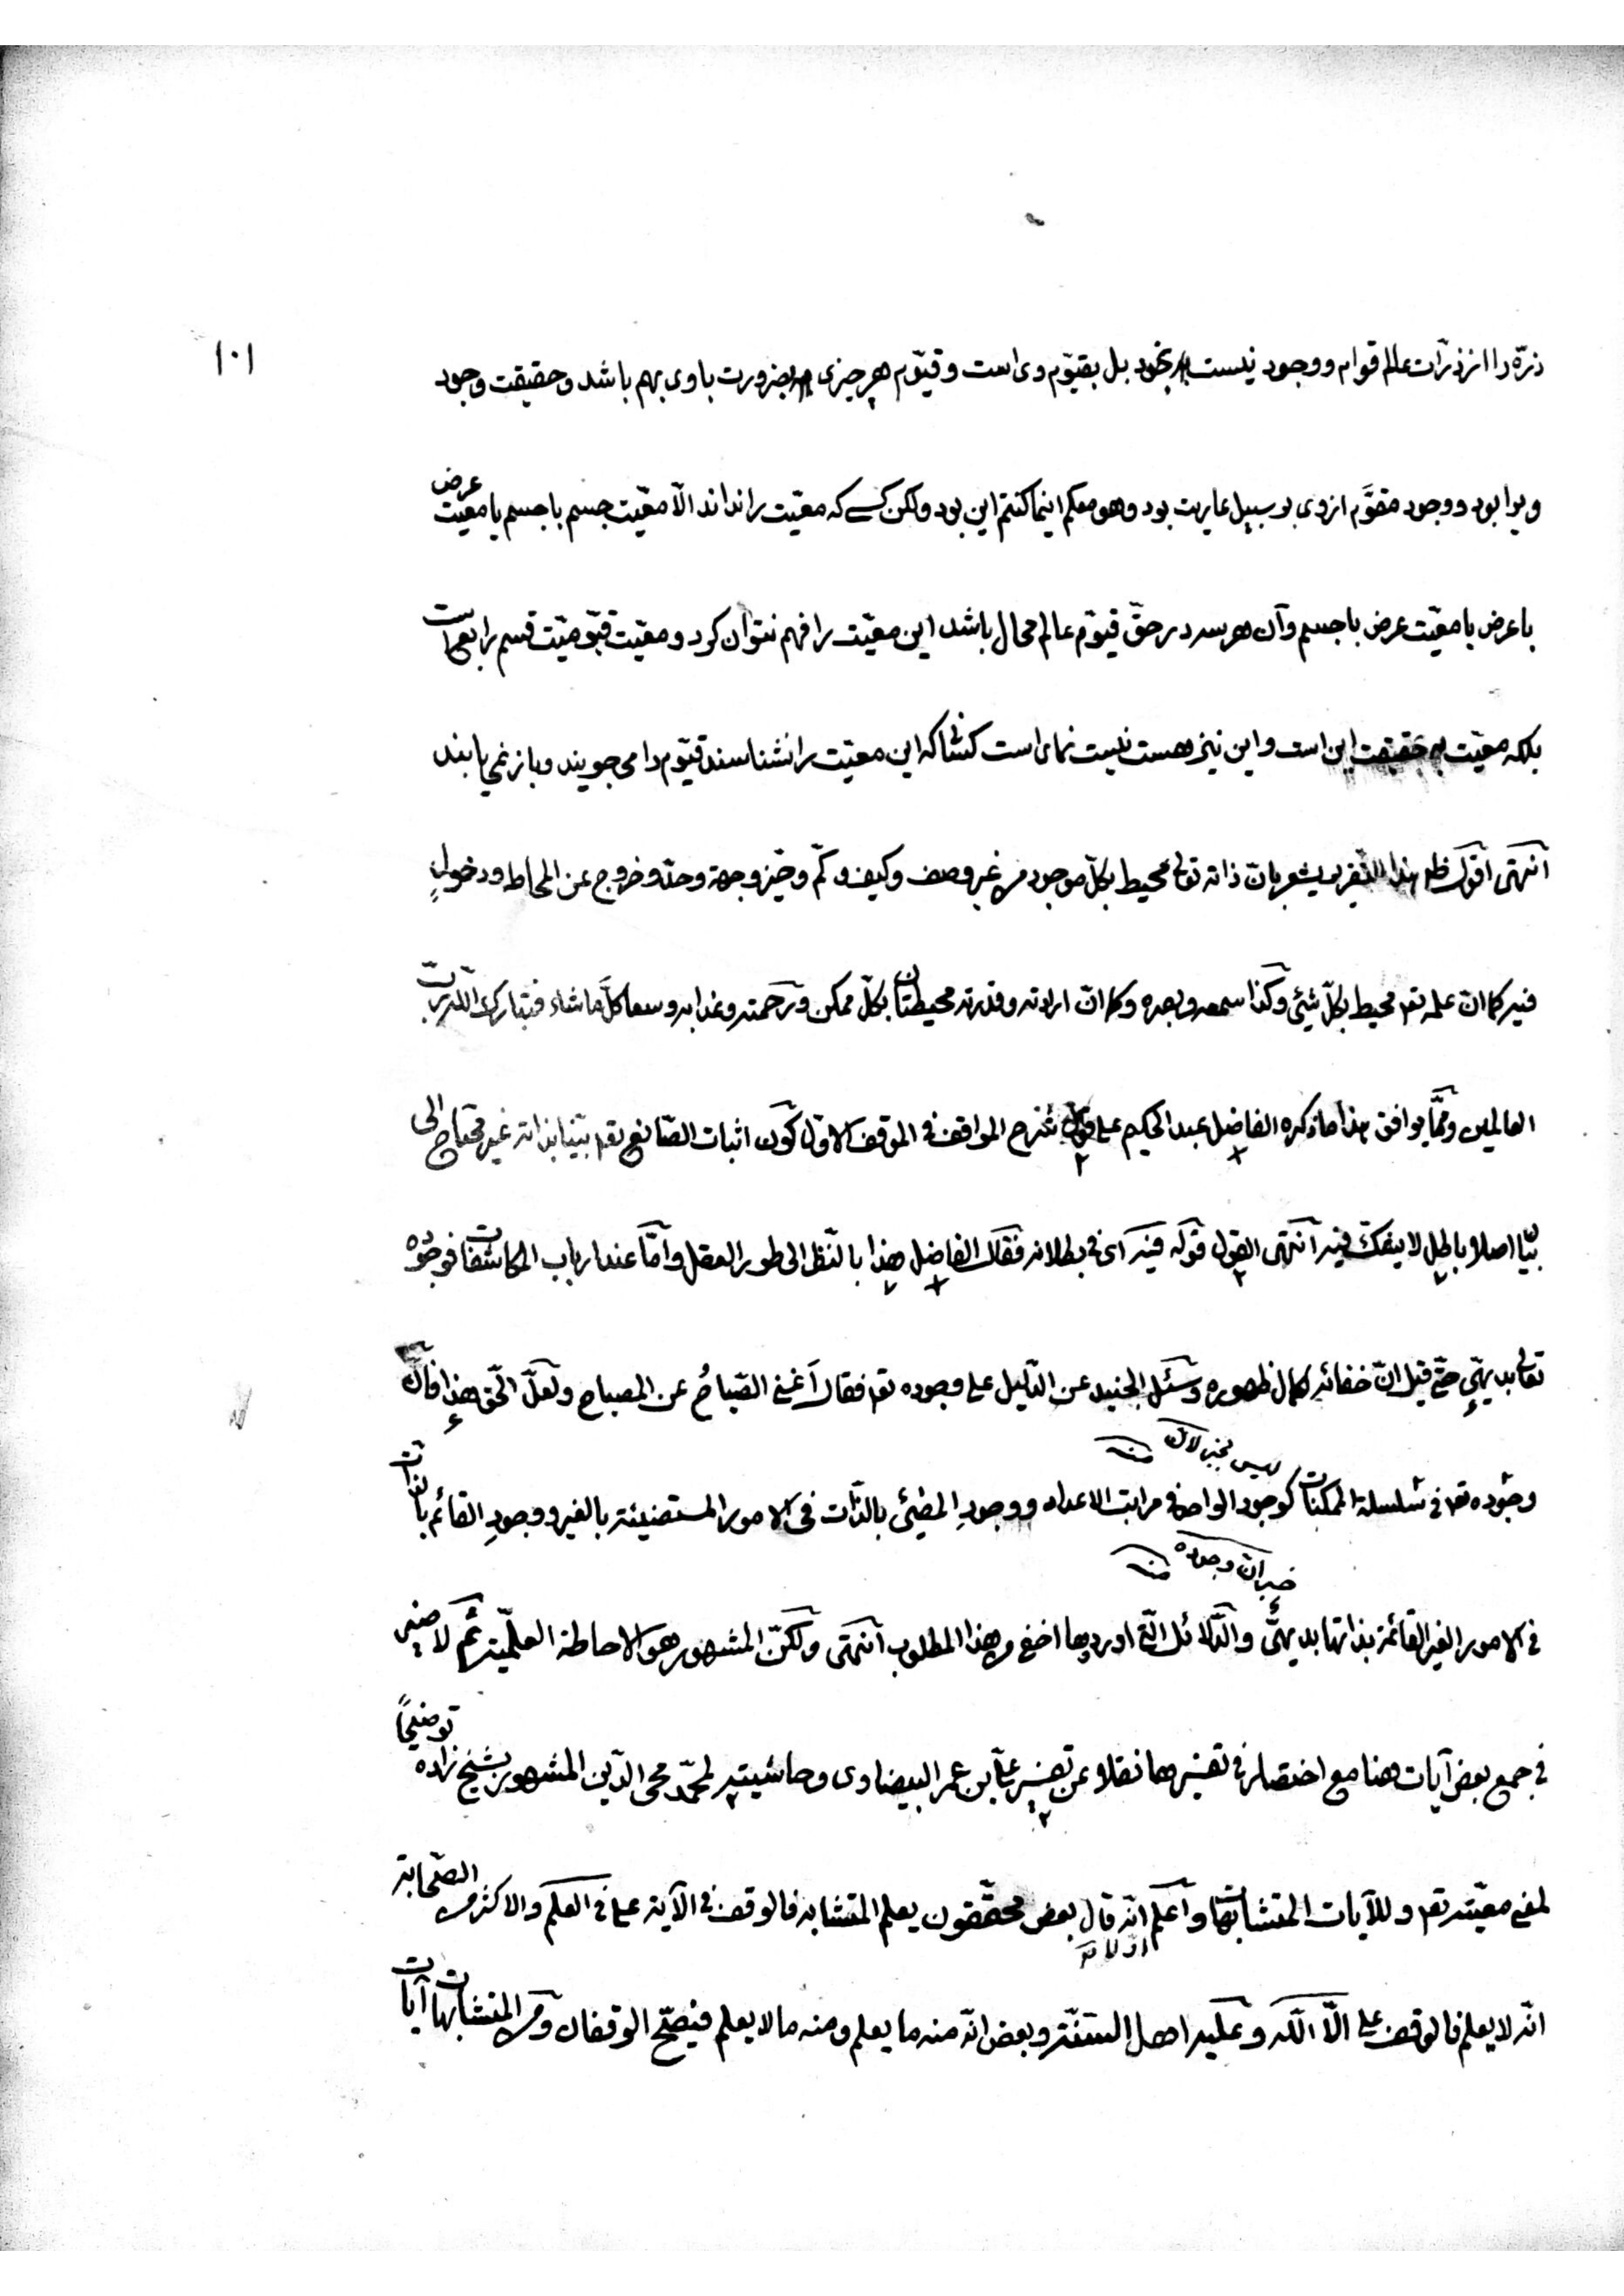 ١٠١
ذرّه را از ذرّات عالم قوام و وجود نیست بخود بل بقیّوم وی است و قیّوم هر چیزی بضرورت باوی بهم باشد و حقیقت وجود
ویرا بود و وجود مقوَّم از وی بر سبیل عاریت بود وهو معکم اینما کنتم این بود ولکن کسے که معیّت را نداند الّا معیّت جسم با جسم یا معیّت عرض
با عرض یا معیّت عرض با جسم وآن هر سه در حقّ قیّوم عالم محال باشد این معیّت را فهم نتوان کرد و معیّت قیّومیّت قسم رابع است
بلکه معیّت بحقیقت این است و این نیز هست نیست نمای است کسانی که این معیّت را نشناسند قیّوم را می جویند و باز نمی یابند
انتهی اقول ظاهر هذا التقریر یشعر بانّ ذاته تعالی محیط بکلّ موجود من غیر وصف وکیف وکمّ وحیّز وجهة وحدّ وخروج عن المحاط ودخولٍ
فیه کما انّ علمه تعـ محیط بکلّ شیئ وکذا سمعه وبصره وکما انّ ارادته وقدرته محیطتان بکلّ ممکن ورحمته وعذابه وسعا کلّ ما شاء فتبارک اللّه ربّ
العالمین وممّا یوافق هذا ما ذکره الفاضل عبد الحکیم علی قول شرح المواقف فی الموقف الاوّل کون اثبات الصّانع تعـ بیّنا بذاته غیر محتاج الی
بیّنا اصلا باطل لا یشکّ فیه انتهی القول قوله فیه ای فی بطلانه فقال الفاضل هذا بالنّظر الی طور العقل وامّا عند ارباب المکاشفات فوجوده
تعالی بدیهیّ حتّی قیل انّ خفائه لکمال ظهوره وسئل الجنید عن الدّلیل علی وجوده تعـ فقال اَغنی الصّباحُ عن المصباح ولعلّ الحقّ هذا فانّ
لیس بخبر لانّ منه
وجوده تعـ فی سلسلة الممکنات کوجود الواحد فی مراتب الاعداد ووجودِ المضیئ بالذّات فی الامور المستضیئة بالغیر ووجودِ القائم بالذّات
خبر انّ وجوده منه
فی الامور الغیر القائمة بذاتها بدیهیّ والدّلائل الّتی اوردوها اخفی من هذا المطلوب انتهی ولکنّ المشهور هو الاحاطة العلمیّة ثمّ لا ضیر
فی جمع بعض آیات هنا مع اختصار فی تفسیرها نقلا عن تفسیر علیّ بن عمر البیضاوی وحاشیته لمحمّد محی الدّین المشهور بشیخ زاده توضیحًا
لمعنی معیّته تعـ وللآیات المتشابهات واعلم انّه قال بعض محقّقون یعلم المتشابه فالوقف فی الآیة علی فی العلم والاکثر من الصّحابة
انّه لا یعلم فالوقف علی الّا اللّه وعلیه اهل السّنّة وبعض انّه منه ما یعلم ومنه ما لا یعلم فیصحّ الوقفان ومن المتشابهات آیات